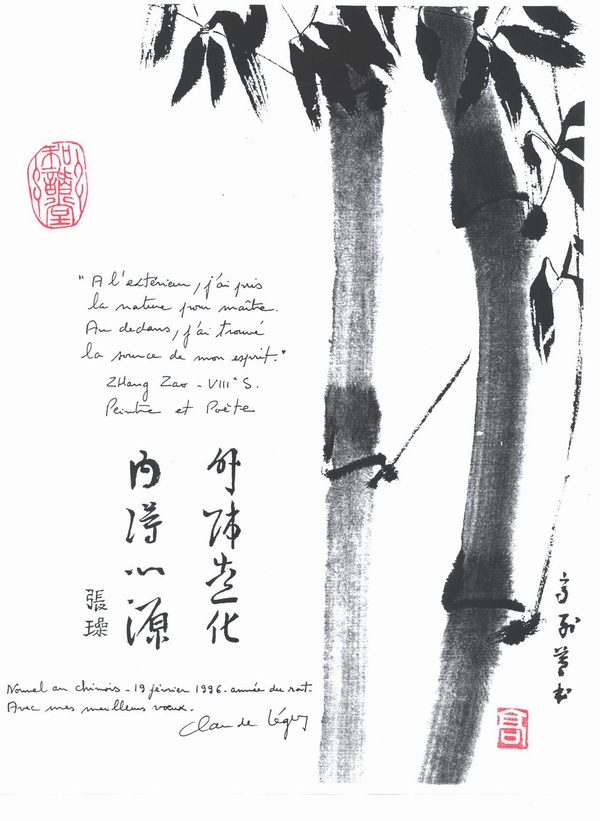 "A l'extérieur, j'ai pris
la nature pour maître.
Au dedans, j'ai trouvé
la source de mon esprit."
Zhang Zao - VIII° S.
Peintre et Poète
外师造化
内得心源
張璪
Nouvel an chinois - 19 février 1996. année du rat.
Avec mes meilleurs voeux.
Claude
高